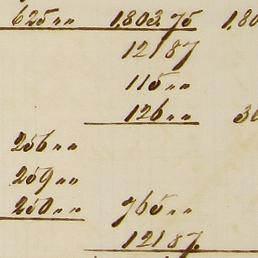 625 " " 1,803.75 1,80
121 87
115 " "
126 " " 30
256 " "
259 " "
250 " " 765 " "
121 87